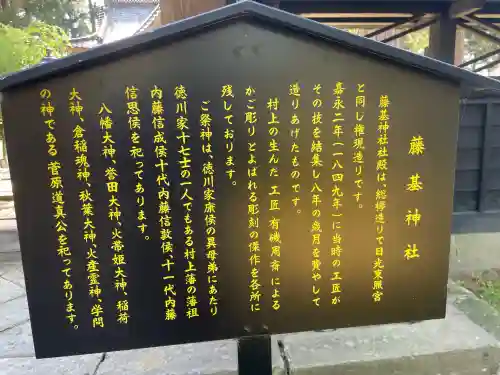 藤基神社
藤基神社社殿は、総欅造りで日光東照宮
と同じ権現造りです。
嘉永二年(一八四九年)に当時の工匠が
その技を結集し八年の歳月を費やして
造りあげたものです。
村上の生んだ工匠 有磯周斎による
かご彫りとよばれる彫刻の傑作を各所に
残しております。
ご祭神は、徳川家康侯の異母弟にあたり
徳川家十七士の一人でもある村上藩の藩祖
内藤信成侯十代内藤信敦侯、十一代内藤
信思侯を祀ってあります。
八幡大神、誉田大神、火帝姫大神、稲荷
大神、倉稲魂神、秋葉大神、火産霊神、学問
の神である 菅原道真公を祀ってあります。